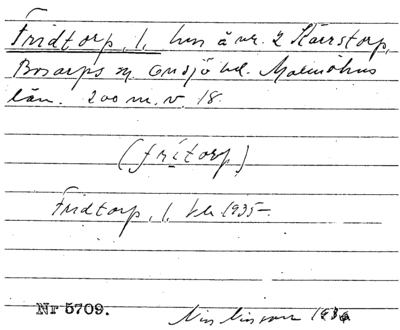 Fridtorp, 1, hus å nr. 2 Kärrstorp,
Bosarps sn. Onsjö hd. Malmöhus
län. 200 m. v. 18.
(frítorp)
Fridtorp, 1, 1935.
Nr 5709.
1936